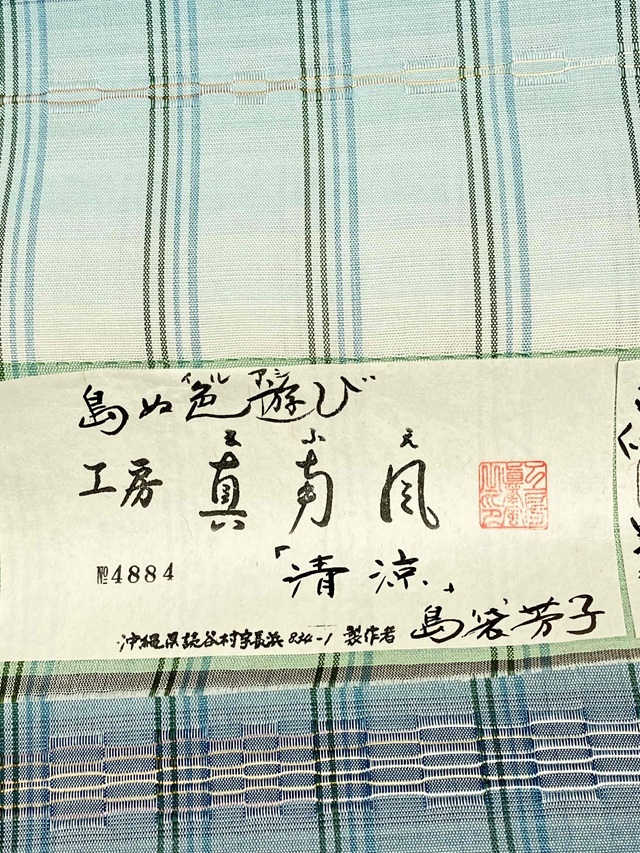 島ぬ色遊び
イル アシ
工房 真南風
№4884
「清涼」
沖縄県読谷村字長浜834-1 製作者 島袋芳子